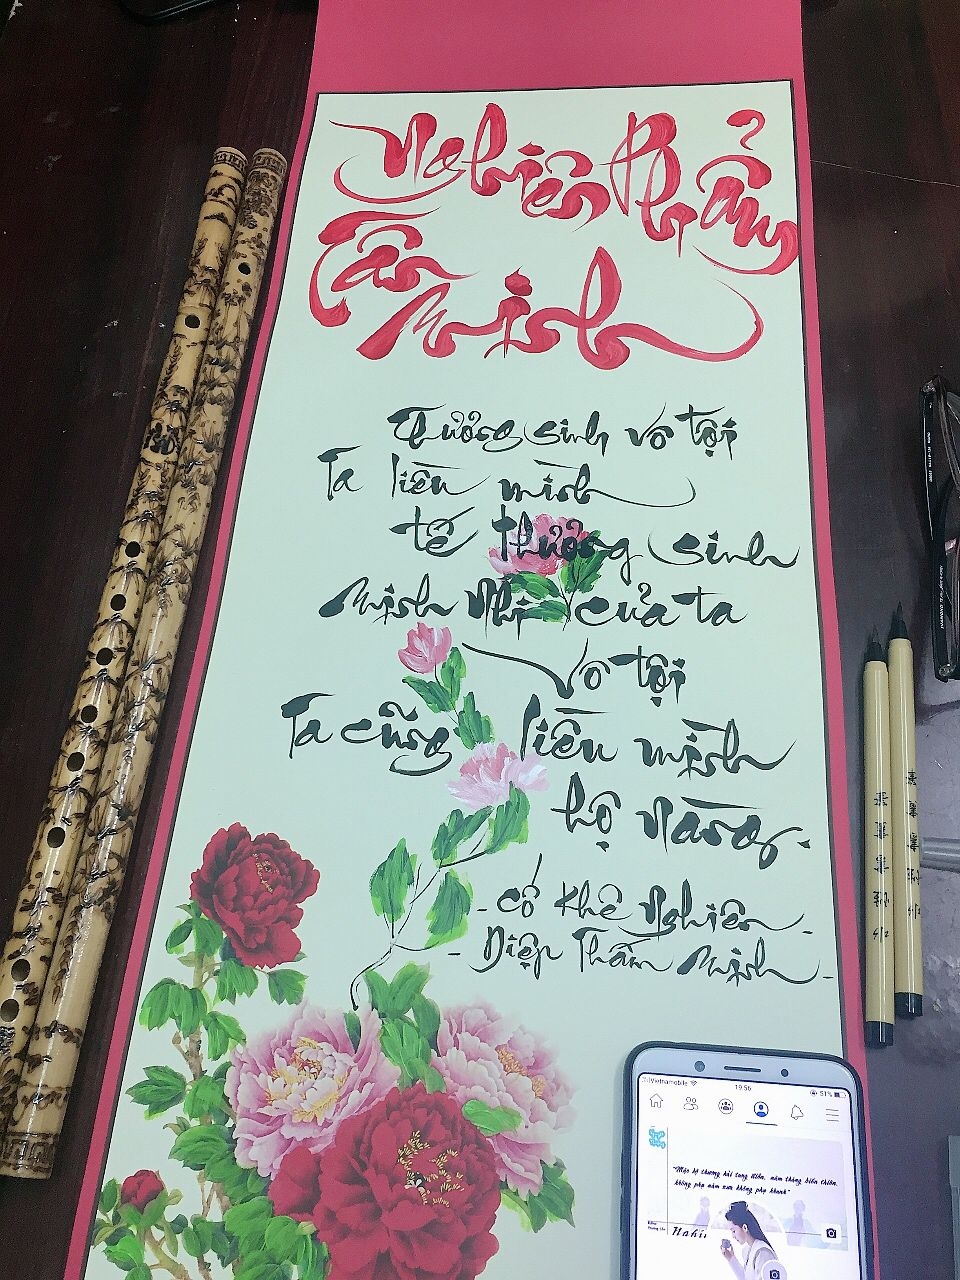 Nghiên Phẩm
Tần
Minh
Thưởng sinh vô tội
Ta liền mình
tế thưởng sinh
Mịnh Nhi của ta
vô tội
Ta cũng liền mịnh
hộ nàng.
- Cố Khê Nghiên -
- Diệp Thấm Mịnh -
Vietnamobile 19:56 51%
"Mạc hệ thương hải tang điền, năm tháng biến thiên,
không phụ năm xưa không phụ khanh"